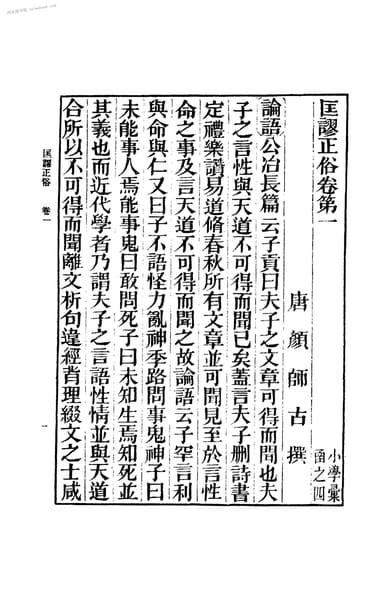 匡謬正俗卷第一
小學彙
函之四
唐顏師古撰
論語公冶長篇云子貢曰夫子之文章可得而聞也夫
子之言性與天道不可得而聞已矣蓋言夫子刪詩書
定禮樂讚易道修春秋所有文章並可聞見至於言性
命之事及言天道不可得而聞之故論語云子罕言利
與命與仁又曰子不語怪力亂神季路問事鬼神子曰
未能事人焉能事鬼曰敢問死子曰未知生焉知死並
其義也而近代學者乃謂夫子之言語性情並與天道
合所以不可得而聞離文析句違經背理綴文之士咸
匡謬正俗
卷一
一